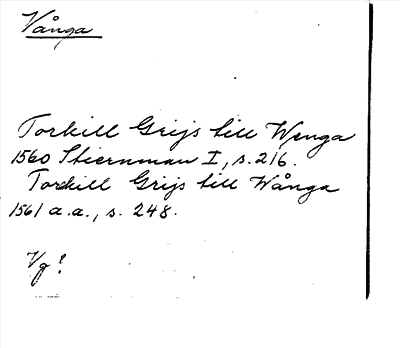 Vånga
Torkill Grijs till Wenga
1560 Stiernman I, s. 216.
Torckill Grijs till Wånga
1561 a.a., s. 248.
Vg!